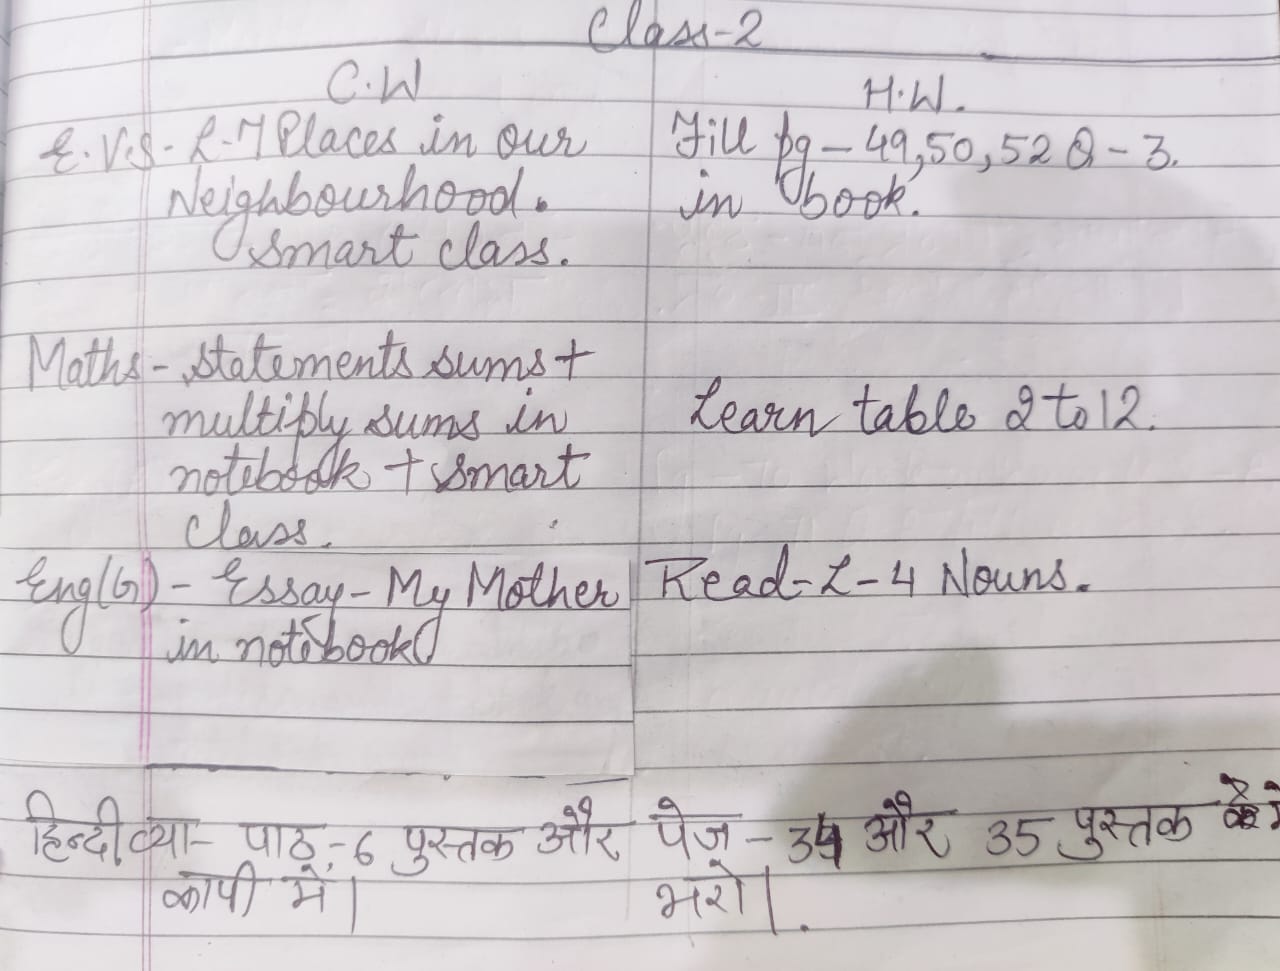 Class-2
C.W
H.W.
E.V.S- L-7 Places in our
Neighbourhood.
Smart class.
Fill pg - 49,50,52 Q-3.
in book.
Maths- statements sums +
multiply sums in
notebook + smart
class.
Learn table 2 to 12.
Eng(G) - Essay- My Mother
in notebook
Read-L-4 Nouns.
हिन्दी व्या- पाठ-6 पुस्तक और
कापी में।
पेज - 34 और 35 पुस्तक में
भरो।